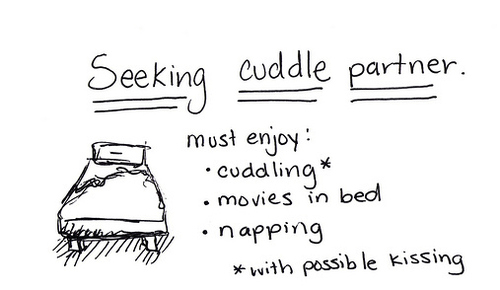 Seeking cuddle partner.
must enjoy:
• cuddling*
• movies in bed
• napping
*with possible kissing